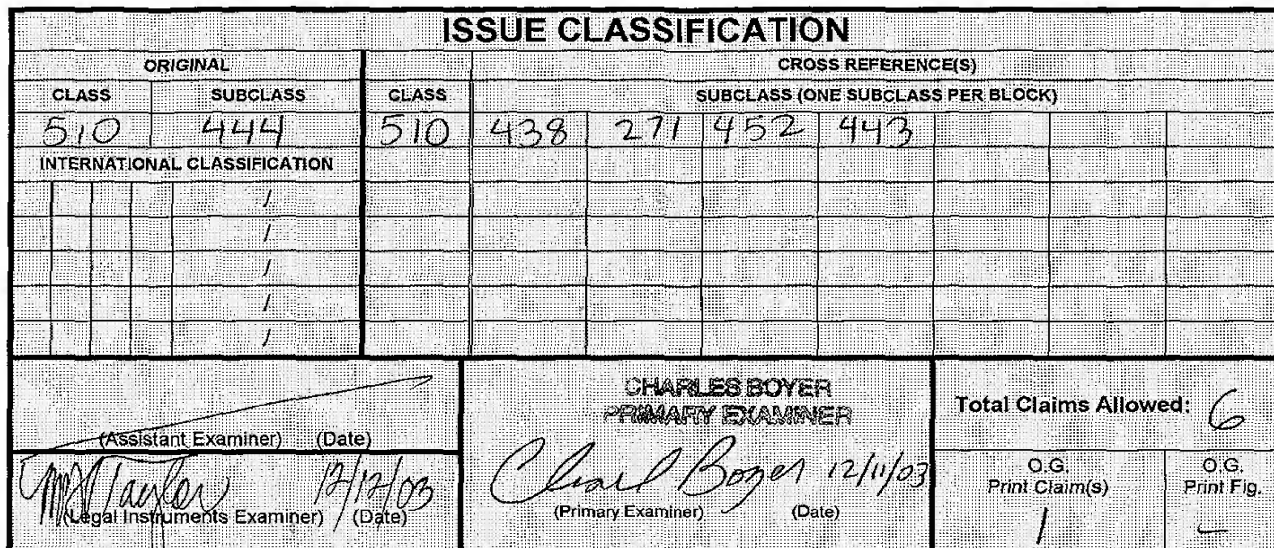 ISSUE CLASSIFICATION
ORIGINAL CROSS REFERENCE(S)
CLASS SUBCLASS CLASS SUBCLASS (ONE SUBCLASS PER BLOCK)
510 444 510 438 271 452 443
INTERNATIONAL CLASSIFICATION
/
/
/
/
/
(Assistant Examiner) (Date)
Taylor 12/12/03
(Legal Instruments Examiner) (Date)
CHARLES BOYER
PRIMARY EXAMINER
Charl Boyer 12/11/03
(Primary Examiner) (Date)
Total Claims Allowed: 6
O.G. O.G.
Print Claim(s) Print Fig.
1 -